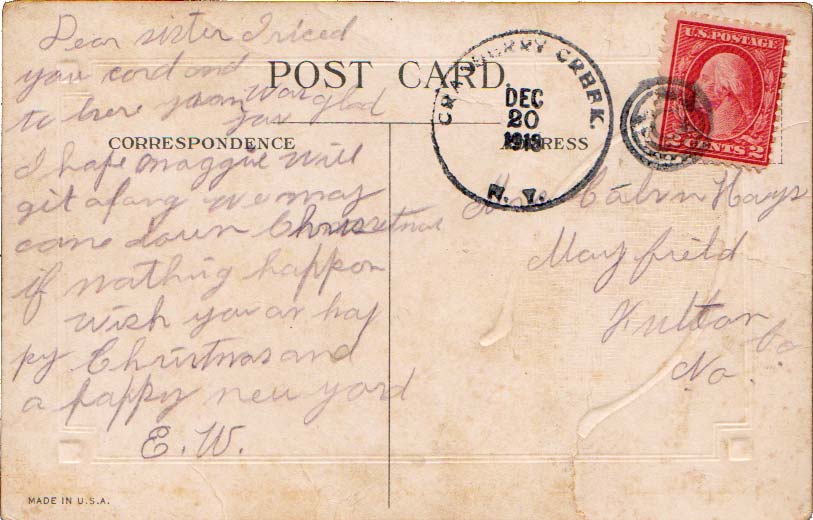 Dear sister I riced
you cord and
POST CARD
to here you was glad
CORRESPONDENCE
I hope maggie will
git along we may
come down Christmas
if nothing happon
wish you an hap
py Christmas and
a happy new yard
E. W.
MADE IN U.S.A.
CRANBERRY CREEK.
DEC
20
N. Y.
U.S. POSTAGE
2 CENTS 2
ADDRESS
Calvin Hays
Mayfield
Fulton Co